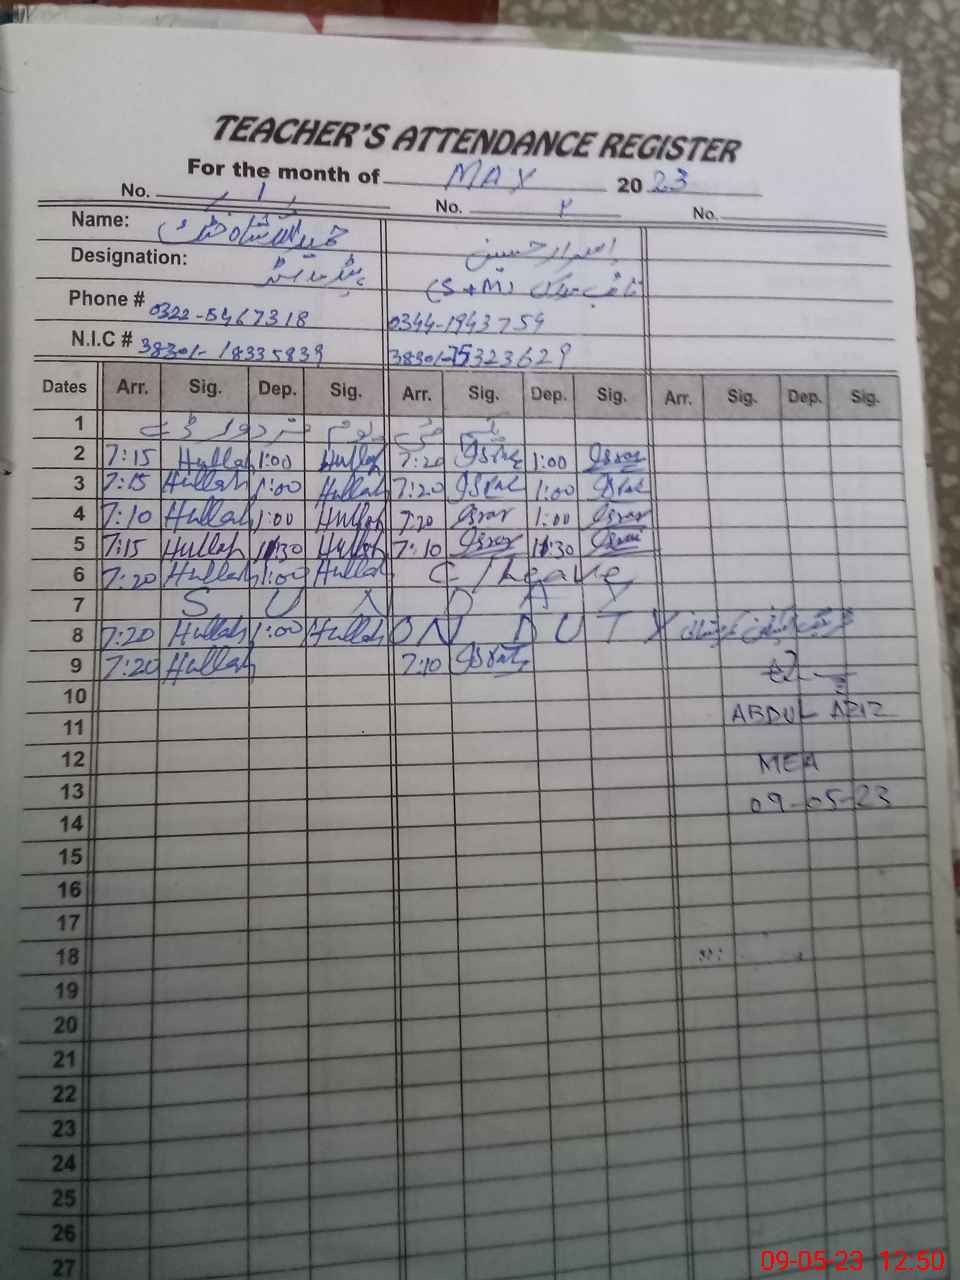 TEACHER'S ATTENDANCE REGISTER
For the month of MAY 2023
No. 1 No. ۲ No.
Name: اسرار حسین
Designation: (S+M)
Phone # 0322-5467318 0344-1943754
N.I.C # 38301-18335839 38301-75323629
Dates Arr. Sig. Dep. Sig. Arr. Sig. Dep. Sig. Arr. Sig. Dep. Sig.
1 یوم
2 7:15 Hullah 1:00 Hullah 7:20 Israr 1:00 Israr
3 7:15 Hullah 1:00 Hullah 7:20 Israr 1:00 Israr
4 7:10 Hullah 1:00 Hullah 7:20 Israr 1:00 Israr
5 7:15 Hullah 11:30 Hullah 7:10 Israr 11:30 Israr
6 7:20 Hullah 1:00 Hullah C/Leave
7 SUNDAY
8 7:20 Hullah 1:00 Hullah ON DUTY
9 7:20 Hullah 7:10 Israr
10
11 ABDUL AZIZ
12 MEA
13 09-05-23
14
15
16
17
18
19
20
21
22
23
24
25
26
27
09-05-23 12:50